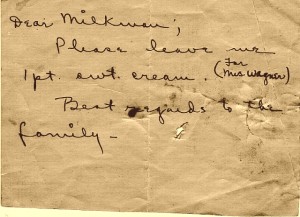 Dear Milkman;
Please leave me
1 pt. swt. cream. (For Mrs Wagner)
Best regards to the
family-